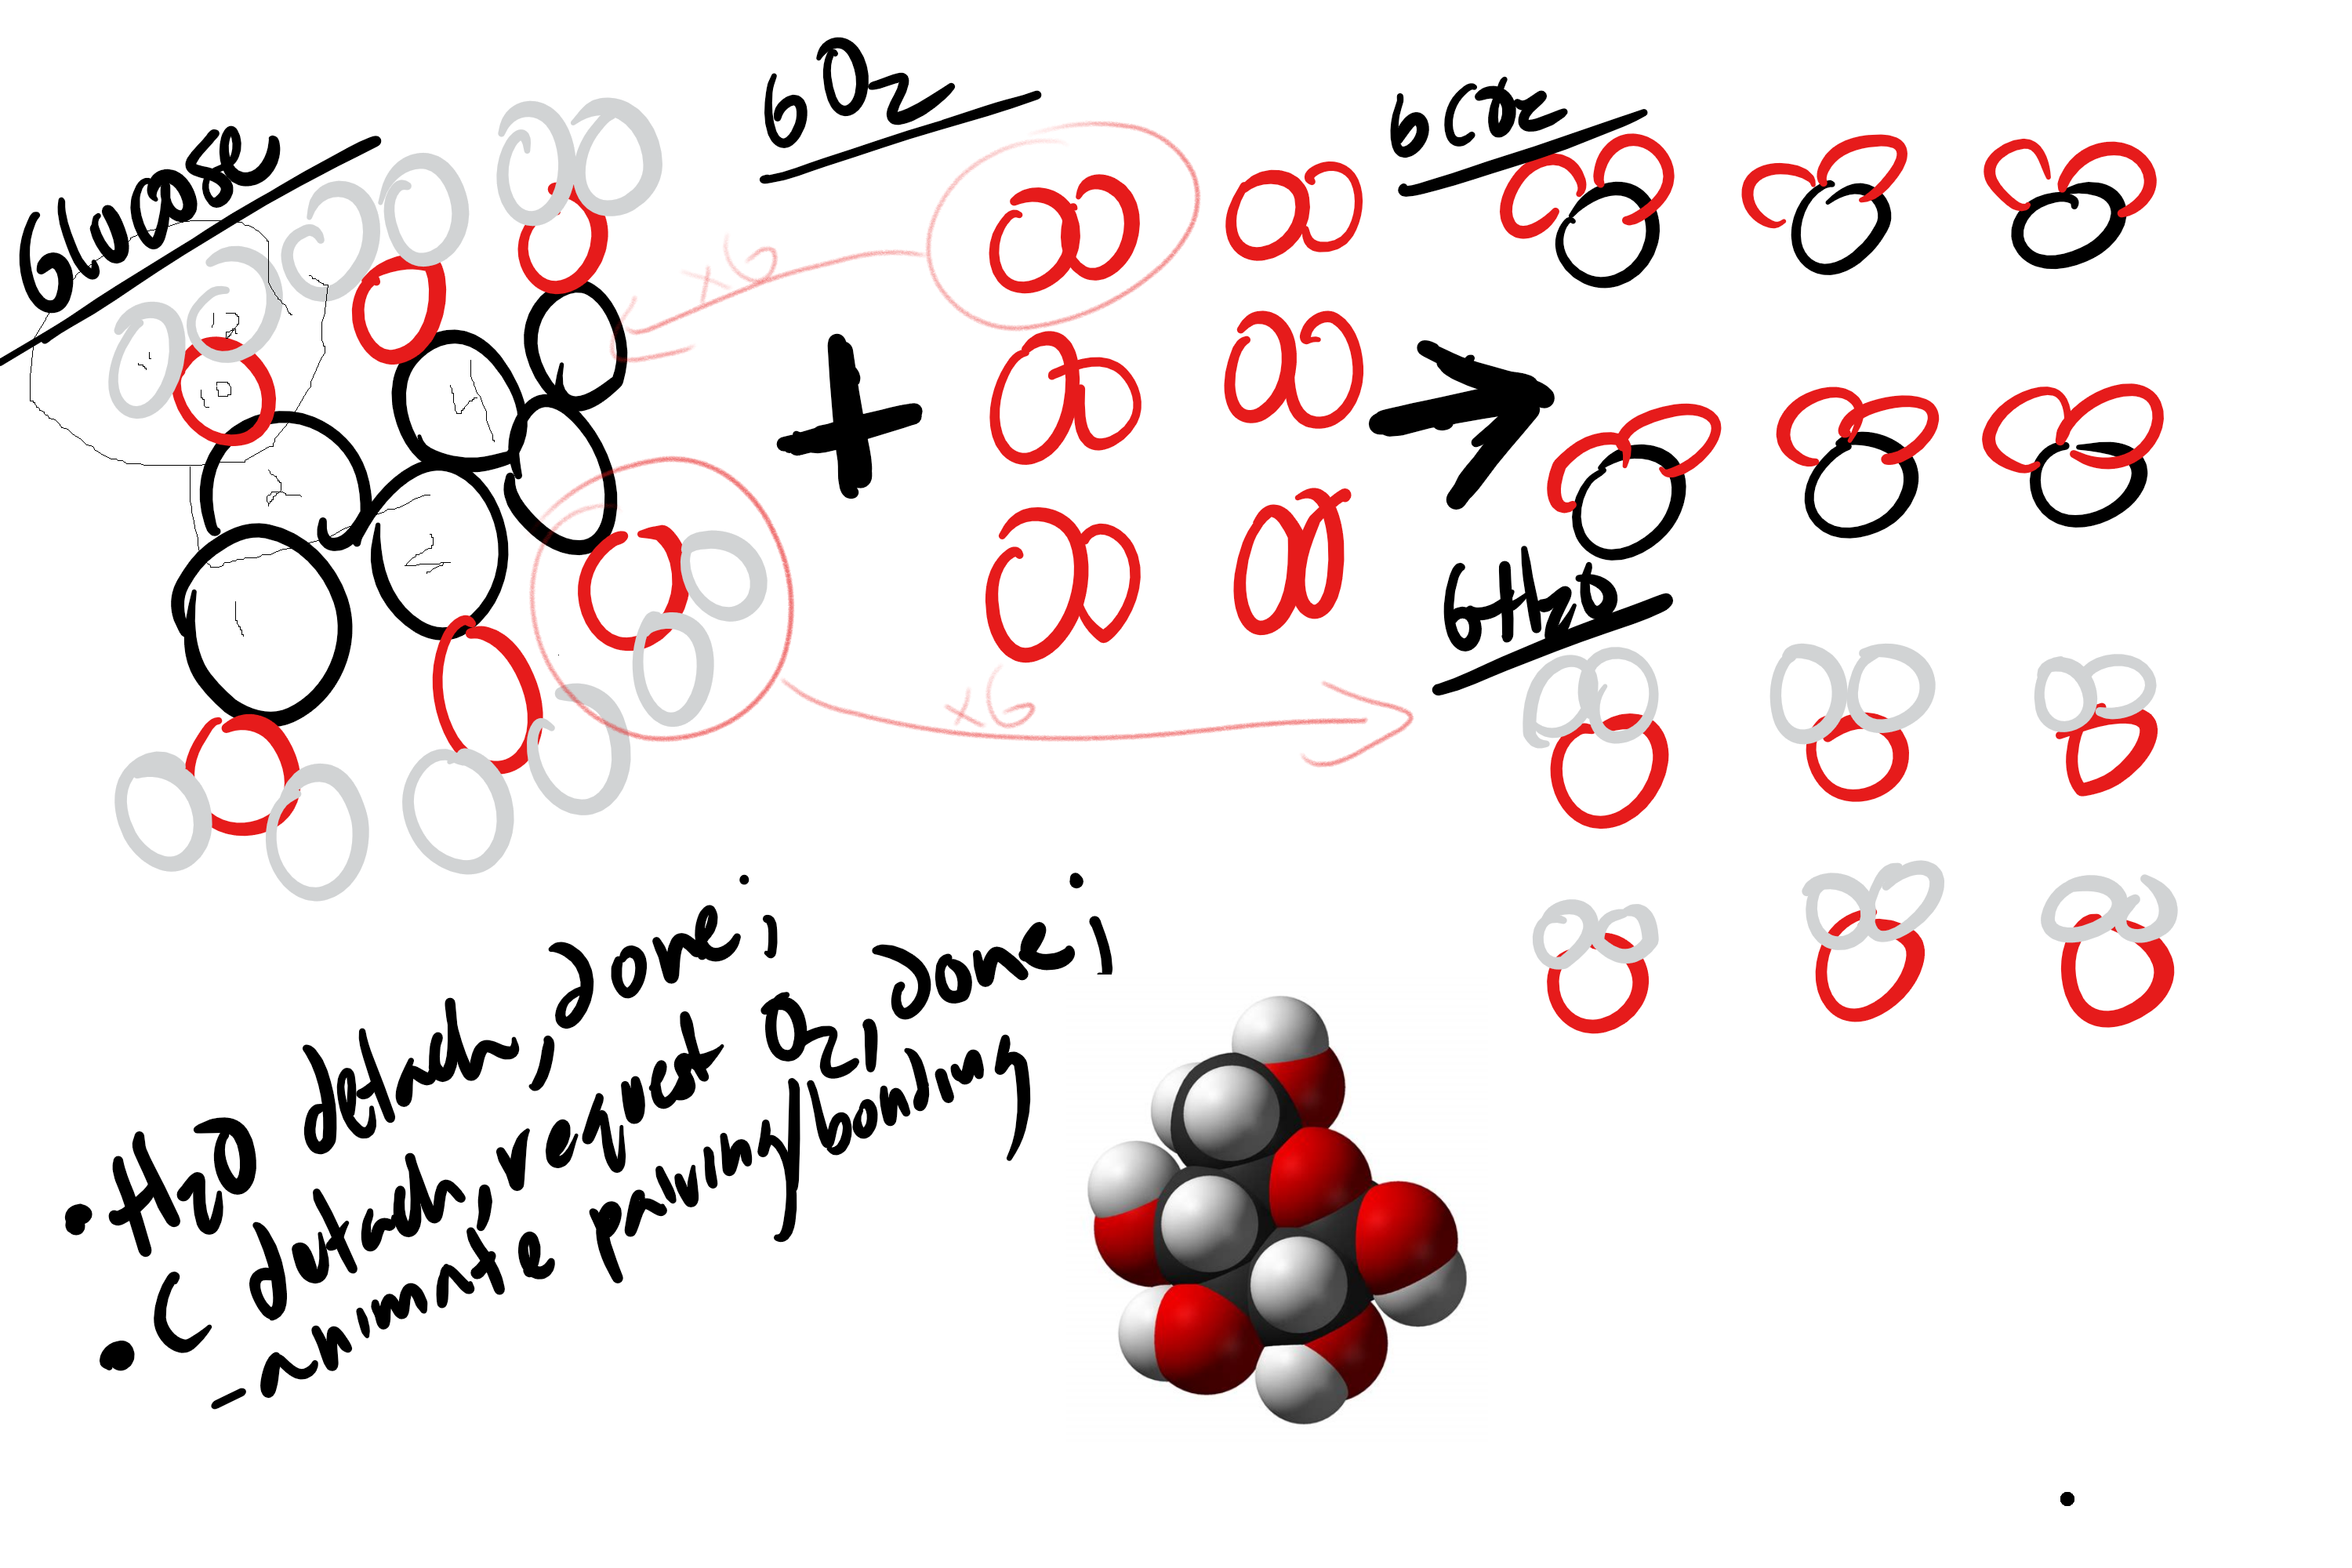 Glucose
6 O2
6 CO2
x6
6 H2O
x6
• H2O detach, done;
• C detach, request O2, done;
- animate pairing/bonding